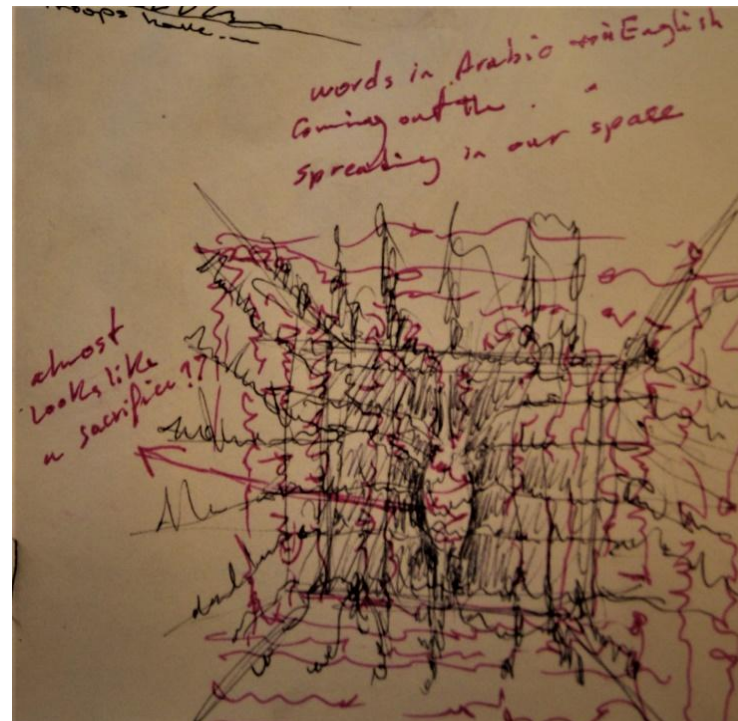 troops have...
words in Arabic English
coming out the
spreading in our space
almost
looks like
a sacrifice??